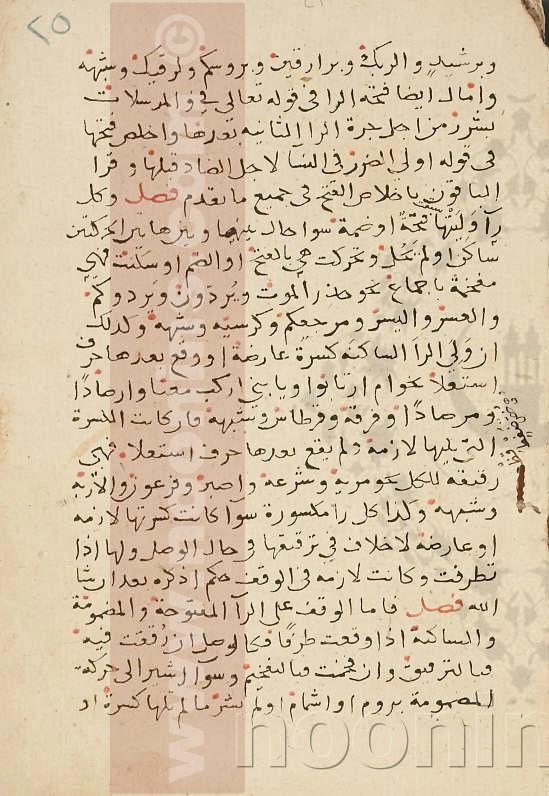 ٢٥
وبرشيد والربك وبرازقين وبروسكم ولرقيك وشبهه
وامال ايضا فتحة الرا في قوله تعالى في والمرسلات
بشرر من اجل جرة الرا الثانيه بعدها واخلص فتحها
في قوله اولي الضرر في النسآ لاجل الضاد قبلها وقرا
الباقون باخلاص الفتح في جميع ما تقدم فصل وكل
رآ وليتها فتحة او ضمة سوا حال بينهما وبين هاتين الحركتين
ساكن او لم يحل وتحركت هي بالفتح او الضم او سكنت فهي
مفخمة باجماع نحو حذر الموت ويردون ويردوكم
والعسر واليسر ومرجعكم وكرسيه وشبهه وكذلك
ان ولي الرا الساكنة كسرة عارضة او وقع بعدها حرف
استعلا نحو ام ارتابوا ويابني اركب معنا وارصادا
ومرصادا وفرقة وقرطاس وشبهه فان كانت الكسرة
التي تليها لازمة ولم يقع بعدها حرف استعلا فهي
رقيقه للكل نحو مريه وشرعه واصبر وفرعون والاربه
وشبهه وكذا كل را مكسورة سوآ كانت كسرتها لازمه
او عارضة لا خلاف في ترقيقها في حال الوصل ولها اذا
تطرفت وكانت لازمه في الوقف حكم اذكره بعد ان شا
الله فصل فاما الوقف على الرآ المفتوحة والمضمومة
والساكنة اذا وقعت طرفا فكالوصل ان رققت فيه
فبالترقيق وان فخمت فبالتفخيم وسوآ اشير الى حركة
المضمومة بروم او اشمام او لم يشر ما لم تلها كسرة او
www.noonin
noonin